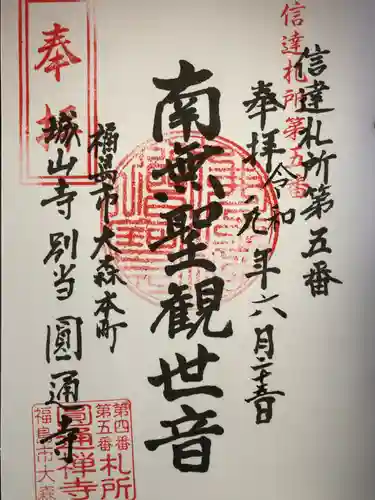 信達札所第五番
信達札所第五番
奉拝 令和元年六月二十五日
南無聖観世音
福島市大森本町
城山寺別当圓通寺
奉拝
第四番
第五番
札所
圓通禅寺
福島市大森